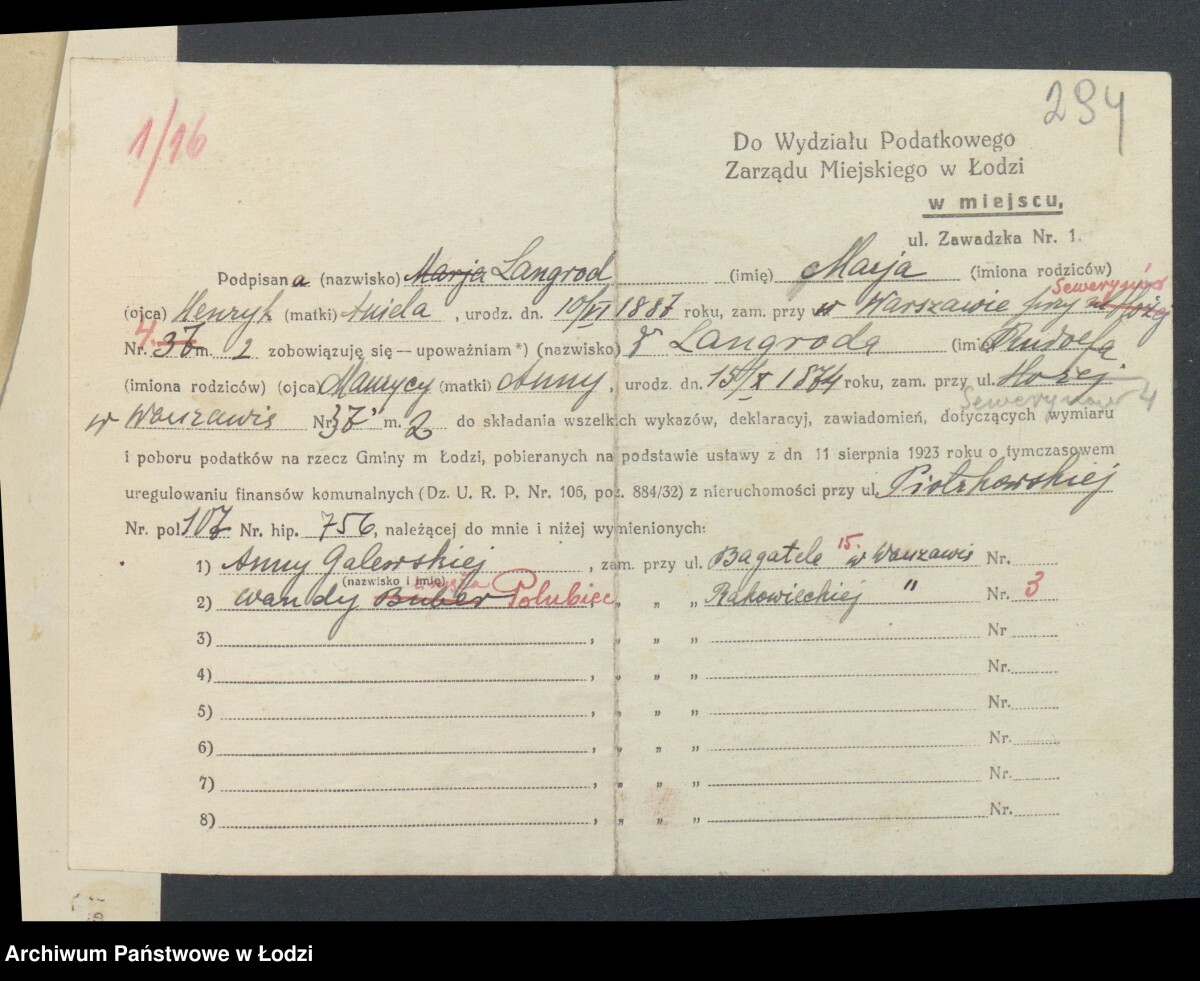 1/16
294
Do Wydziału Podatkowego
Zarządu Miejskiego w Łodzi
w miejscu,
ul. Zawadzka Nr. 1.
Podpisana (nazwisko) Marja Langrod (imię) Marja (imiona rodziców)
(ojca) Henryk (matki) Aniela, urodz. dn. 10/VI 1887 roku, zam. przy w Warszawie przy ul.
4.
Nr. 37 m. 2 zobowiązuję się — upoważniam *) (nazwisko) Langroda (imię) Rudolfa
(imiona rodziców) (ojca) Maurycy (matki) Anny, urodz. dn. 15/X 1874 roku, zam. przy ul. Hożej
w Warszawie Nr 37 m. 2 do składania wszelkich wykazów, deklaracyj, zawiadomień, dotyczących wymiaru
i poboru podatków na rzecz Gminy m Łodzi, pobieranych na podstawie ustawy z dn 11 sierpnia 1923 roku o tymczasowem
uregulowaniu finansów komunalnych (Dz. U. R. P. Nr. 106, poz. 884/32) z nieruchomości przy ul. Piotrkowskiej
Nr. pol 107 Nr. hip. 756, należącej do mnie i niżej wymienionych:
1) Anny Galewskiej, zam. przy ul. Bagatela 15. w Warszawie Nr.
(nazwisko i imię)
2) Wandy Buber Polubiec „ „ „ Rakowieckiej " Nr. 3
3) , „ „ „ Nr
4) , „ „ „ Nr.
5) , „ „ „ Nr.
6) , „ „ „ Nr.
7) , „ „ „ Nr.
8) , „ „ „ Nr.
Archiwum Państwowe w Łodzi